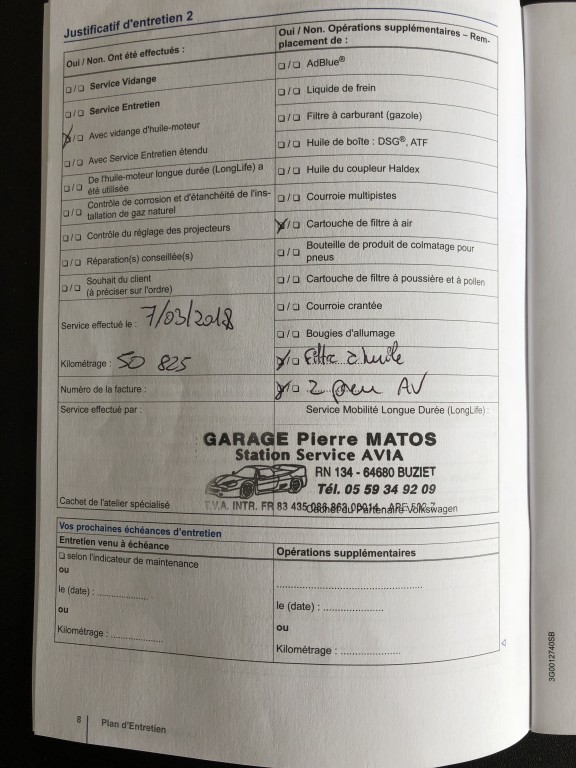 Justificatif d'entretien 2
Oui / Non. Ont été effectués :
❏/❏ Service Vidange
❏/❏ Service Entretien
X/❏ Avec vidange d'huile-moteur
❏/❏ Avec Service Entretien étendu
❏/❏ De l'huile-moteur longue durée (LongLife) a
été utilisée
❏/❏ Contrôle de corrosion et d'étanchéité de l'ins-
tallation de gaz naturel
❏/❏ Contrôle du réglage des projecteurs
❏/❏ Réparation(s) conseillée(s)
❏/❏ Souhait du client
(à préciser sur l'ordre)
Service effectué le : 7/03/2018
Kilométrage : 50 825
Numéro de la facture :
Service effectué par :
Oui / Non. Opérations supplémentaires – Rem-
placement de :
❏/❏ AdBlue®
❏/❏ Liquide de frein
❏/❏ Filtre à carburant (gazole)
❏/❏ Huile de boîte : DSG®, ATF
❏/❏ Huile du coupleur Haldex
❏/❏ Courroie multipistes
X/❏ Cartouche de filtre à air
❏/❏ Bouteille de produit de colmatage pour
pneus
❏/❏ Cartouche de filtre à poussière et à pollen
❏/❏ Courroie crantée
❏/❏ Bougies d'allumage
X/❏ Filtre à huile
X/❏ 2 pneu AV
Service Mobilité Longue Durée (LongLife) :
GARAGE Pierre MATOS
Station Service AVIA
RN 134 - 64680 BUZIET
Tél. 05 59 34 92 09
T.V.A. INTR. FR 83 435
Cachet de l'atelier spécialisé
Cachet du Partenaire Volkswagen
Vos prochaines échéances d'entretien
Entretien venu à échéance
❏ selon l'indicateur de maintenance
ou
le (date) : ....................
ou
Kilométrage : ....................
Opérations supplémentaires
..................................................
le (date) : ....................
ou
Kilométrage : ....................
8 Plan d'Entretien
3G0012740SB